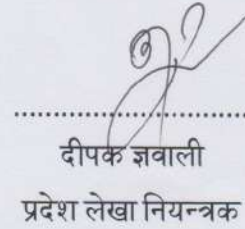 दीपक ज्ञवाली
प्रदेश लेखा नियन्त्रक